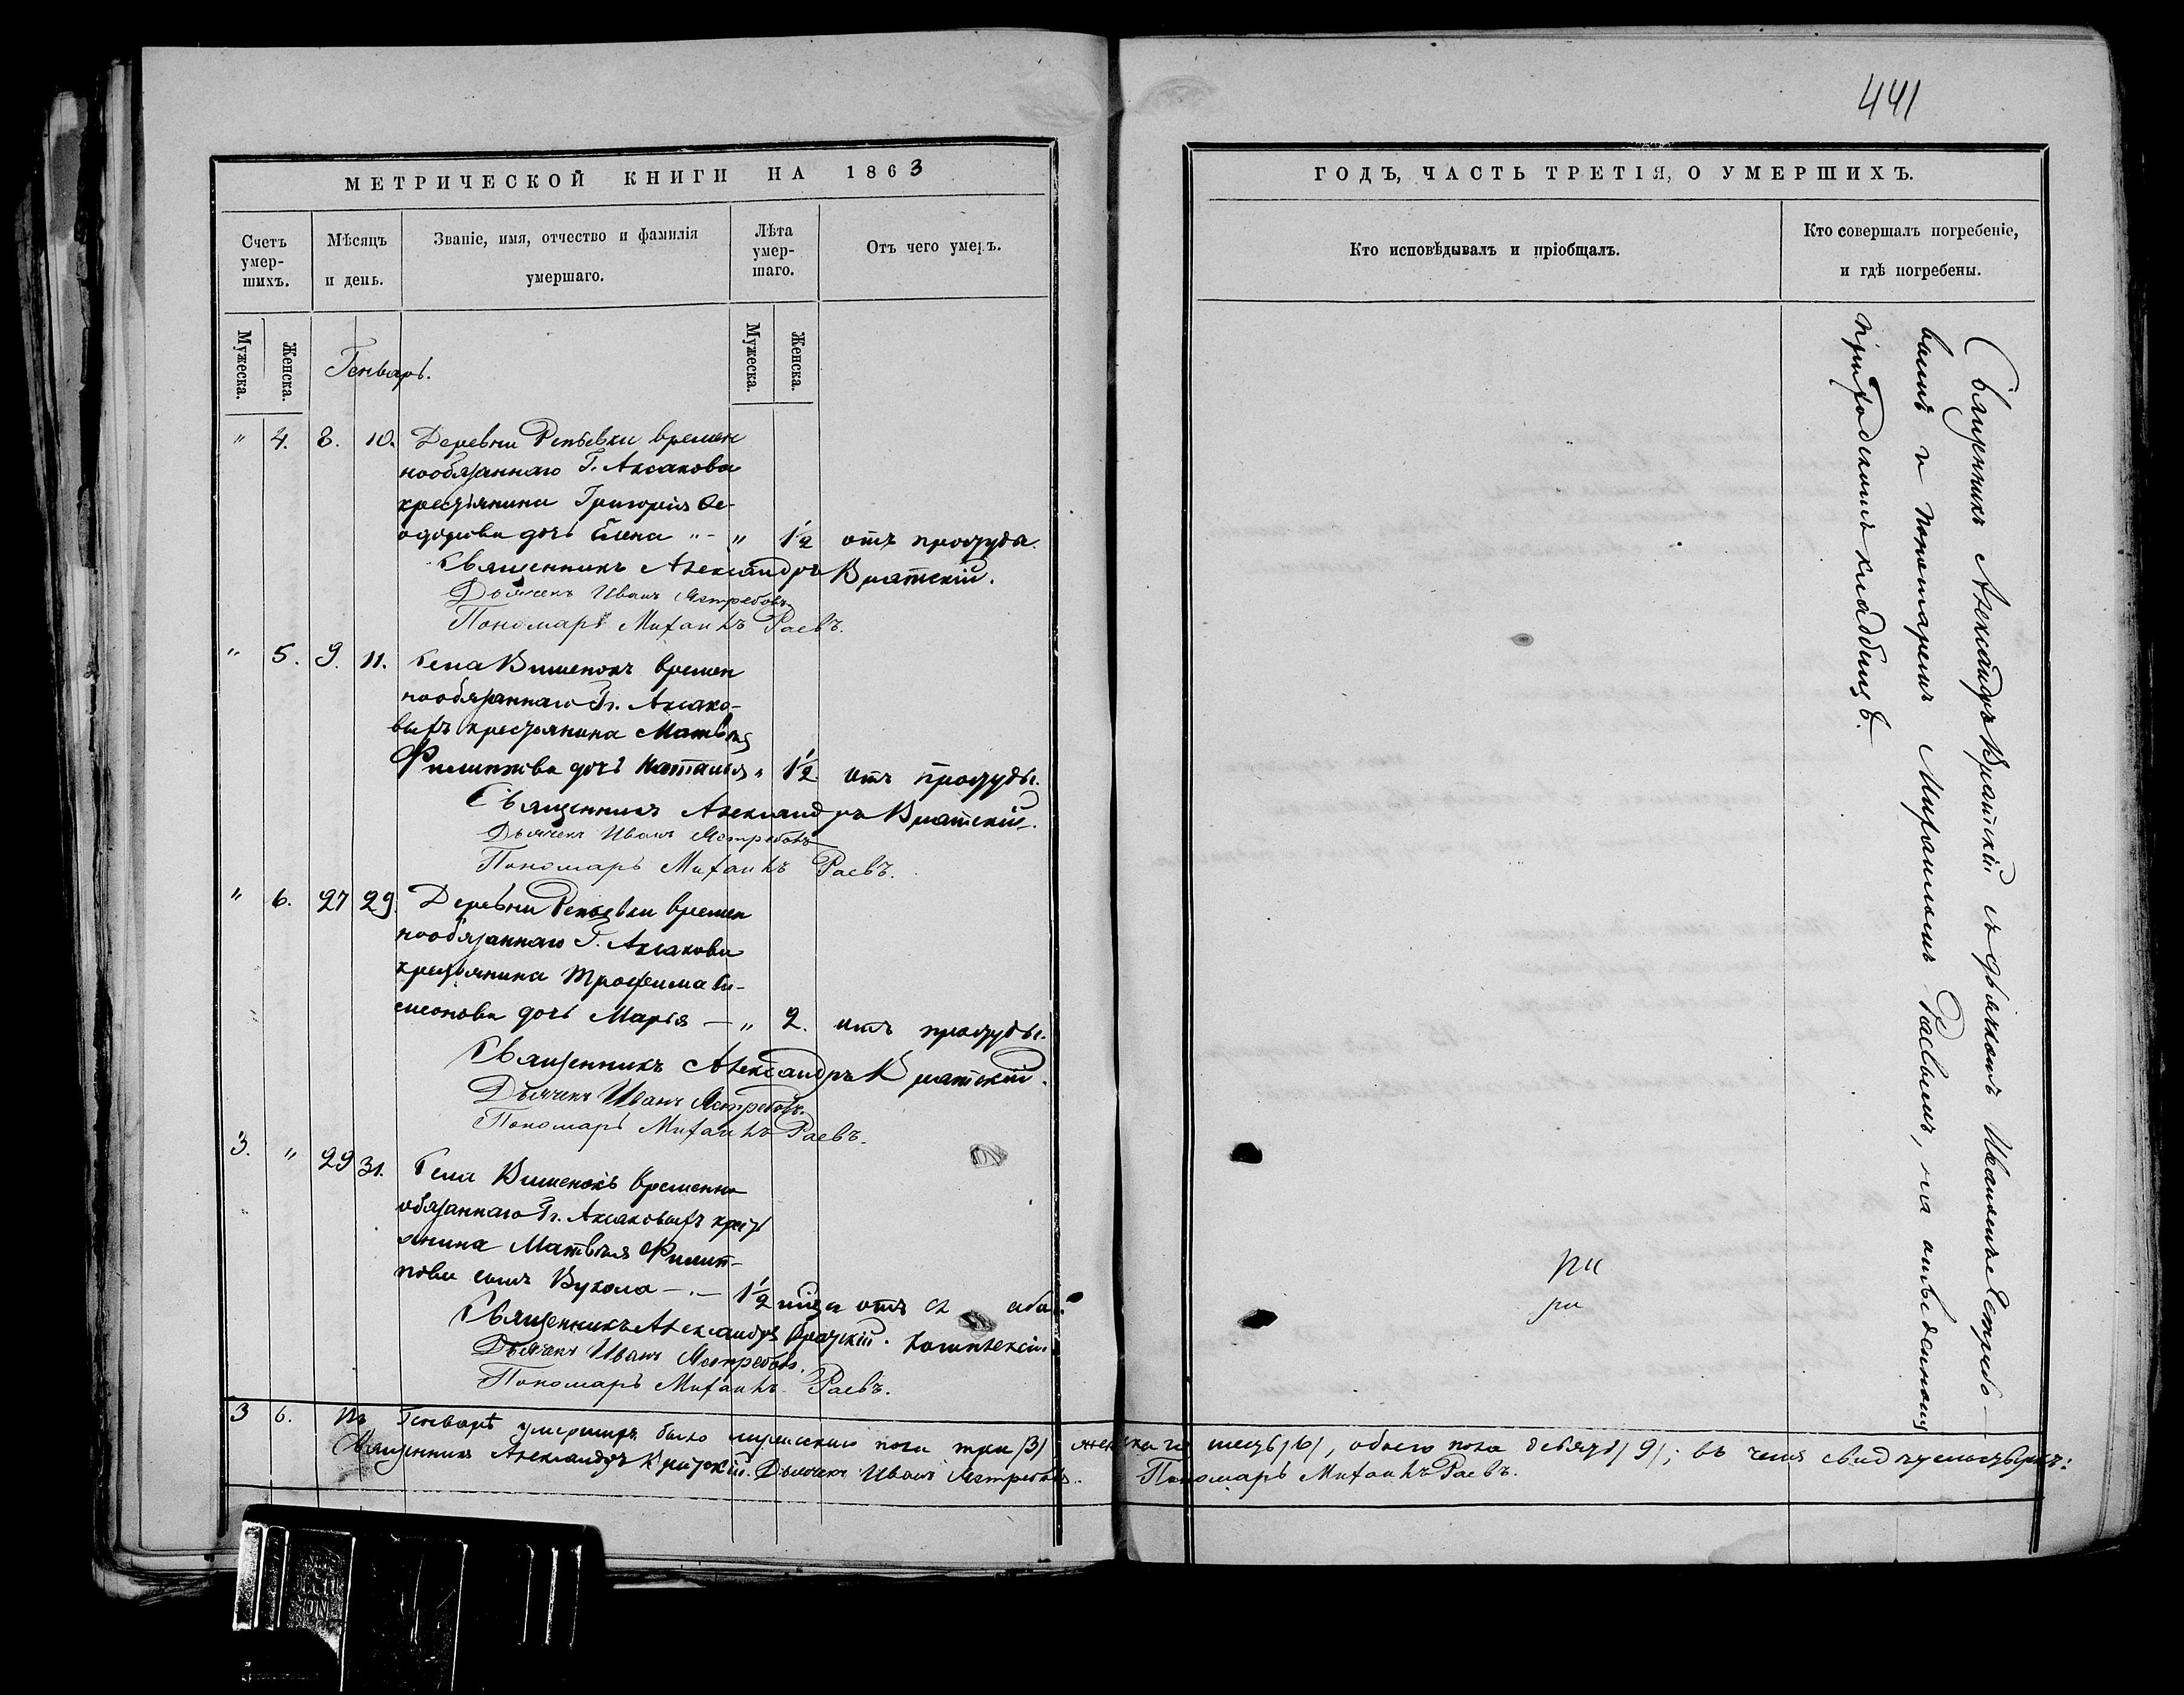 441
МЕТРИЧЕСКОЙ КНИГИ НА 1863
ГОДЪ, ЧАСТЬ ТРЕТІЯ, О УМЕРШИХЪ.
Счетъ умер-
шихъ.
Мѣсяцъ
и день.
Званіе, имя, отчество и фамилія
умершаго.
Лѣта
умер-
шаго.
Отъ чего умеръ.
Кто исповѣдывалъ и пріобщалъ.
Кто совершалъ погребеніе,
и гдѣ погребены.
Мужеска.
Женска.
Мужеска.
Женска.
Генварь.
" 4. 8. 10. Деревни Репьевки времен
нообязаннаго Г. Аксакова
крестьянина Григорія Ѳе-
одорова дочь Елена " - " 1½ отъ простуды.
Священникъ Александръ
Дьячекъ Иванъ Ястребовъ.
Пономарь Михаилъ Раевъ.
" 5. 9. 11. Села Вишенокъ времен
нообязаннаго Гг. Аксако-
выхъ крестьянина Матвѣя
Филиппова дочь Наталья " 1½ отъ простуды.
Священникъ Александръ
Дьячекъ Иванъ Ястребовъ
Пономарь Михаилъ Раевъ.
" 6. 27 29. Деревни Репьевки времен
нообязаннаго Г. Аксакова
крестьянина Трофима Си-
меонова дочь Марья — " 2. отъ простуды.
Священникъ Александръ
Дьячекъ Иванъ Ястребовъ.
Пономарь Михаилъ Раевъ.
3. " 29 31. Села Вишенокъ временно
обязаннаго Гг. Аксаковыхъ крест
янина Матвѣя Филип-
пова сынъ Вукола — . — 1½ отъ
Священникъ Александръ
комплекціи
Дьячекъ Иванъ Ястребовъ.
Пономарь Михаилъ Раевъ.
Священникъ Александръ съ дьячкомъ Иваномъ Ястребо—
вымъ и пономаремъ Михаиломъ Раевымъ, на отведенномъ
приходскомъ кладбищѣ.
3 6. Въ Генварѣ умершихъ было мужескаго пола три /3/ женскаго шесть /6/, обоего пола девять /9/; въ чемъ свидѣтельствуемъ:
Священникъ Александръ Дьячекъ Иванъ Ястребовъ. Пономарь Михаилъ Раевъ.